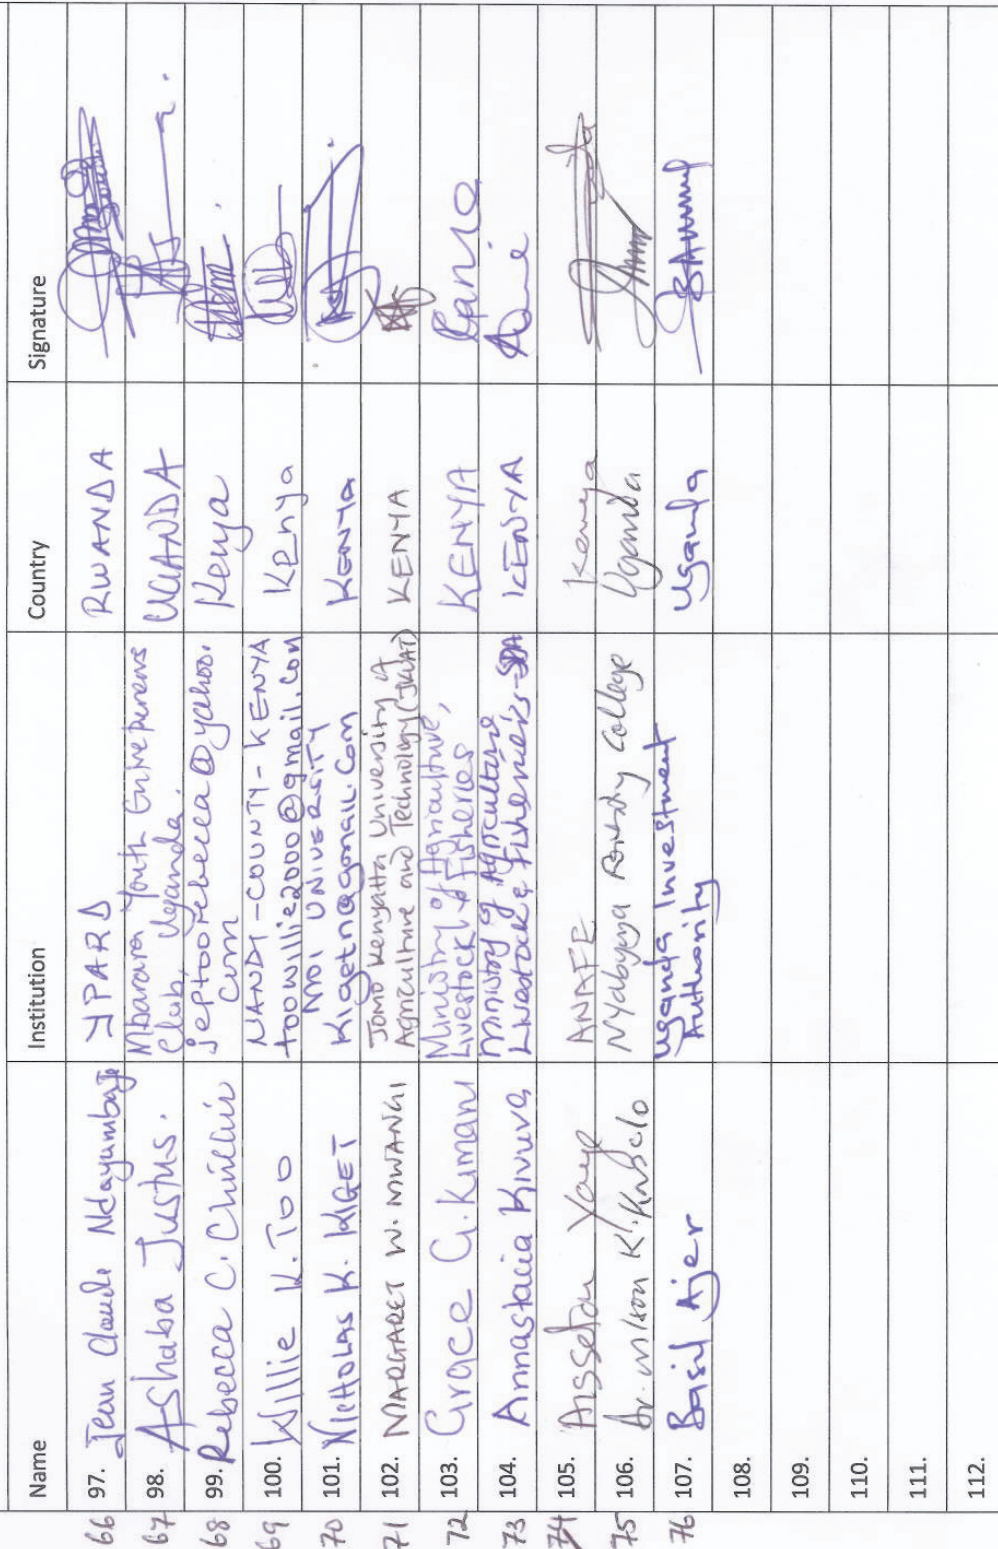 Name Institution Country Signature
66 97. Jean Claude Ndayumbaje YPARD RWANDA
67 98. Ashaba Justus. Mbarara Youth Entrepreneurs
Club, Uganda. UGANDA
68 99. Rebecca C. jeptoorebecca@yahoo.
com Kenya
69 100. Willie K. Too NANDI-COUNTY-KENYA
toowillie2000@gmail.com Kenya
70 101. NICHOLAS K. KIGET MOI UNIVERSITY
Kigetn@gmail.com KENYA
71 102. MARGARET W. MWANGI Jomo Kenyatta University of
Agriculture and Technology (JKUAT) KENYA
72 103. Grace G. Kimani Ministry of Agriculture,
Livestock & Fisheries KENYA
73 104. Annastacia Kivuva Ministry of Agriculture
Livestock & Fisheries- KENYA
74 105. Aissetou Yaye ANAFE Kenya
75 106. Dr. Wilson K. Kasolo Nyabyeya Forestry College Uganda
76 107. Basil Ajer Uganda Investment
Authority Uganda
108.
109.
110.
111.
112.